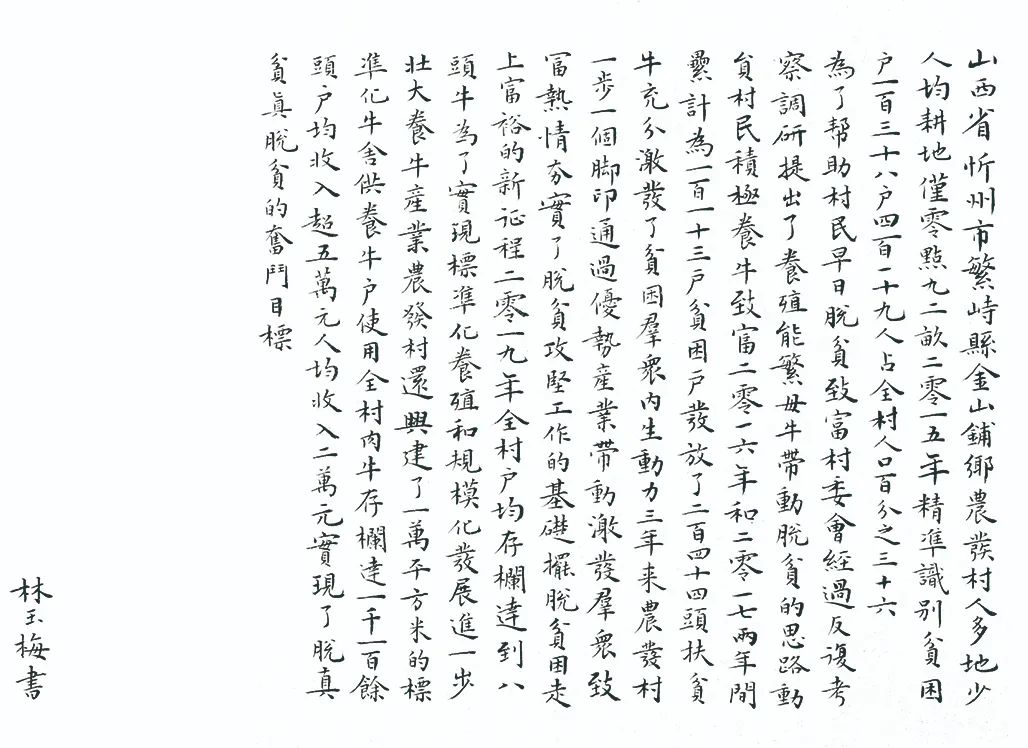 山西省忻州市繁峙縣金山鋪鄉農發村人多地少
人均耕地僅零點九二畝二零一五年精準識別貧困
户一百三十八户四百一十九人占全村人口百分之三十六
為了幫助村民早日脫貧致富村委會經過反復考
察調研提出了養殖能繁母牛帶動脫貧的思路動
員村民積極養牛致富二零一六年和二零一七兩年間
纍計為一百一十三户貧困户發放了二百四十四頭扶貧
牛充分激發了貧困羣衆內生動力三年来農發村
一步一個脚印通過優勢産業帶動激發羣衆致
富熱情夯實了脫貧攻堅工作的基礎擺脫貧困走
上富裕的新征程二零一九年全村户均存欄達到八
頭牛為了實現標準化養殖和規模化發展進一步
壯大養牛産業農發村還興建了一萬平方米的標
準化牛舍供養牛户使用全村肉牛存欄達一千一百餘
頭户均收入超五萬元人均收入二萬元實現了脫真
貧真脫貧的奮鬥目標
林玉梅書